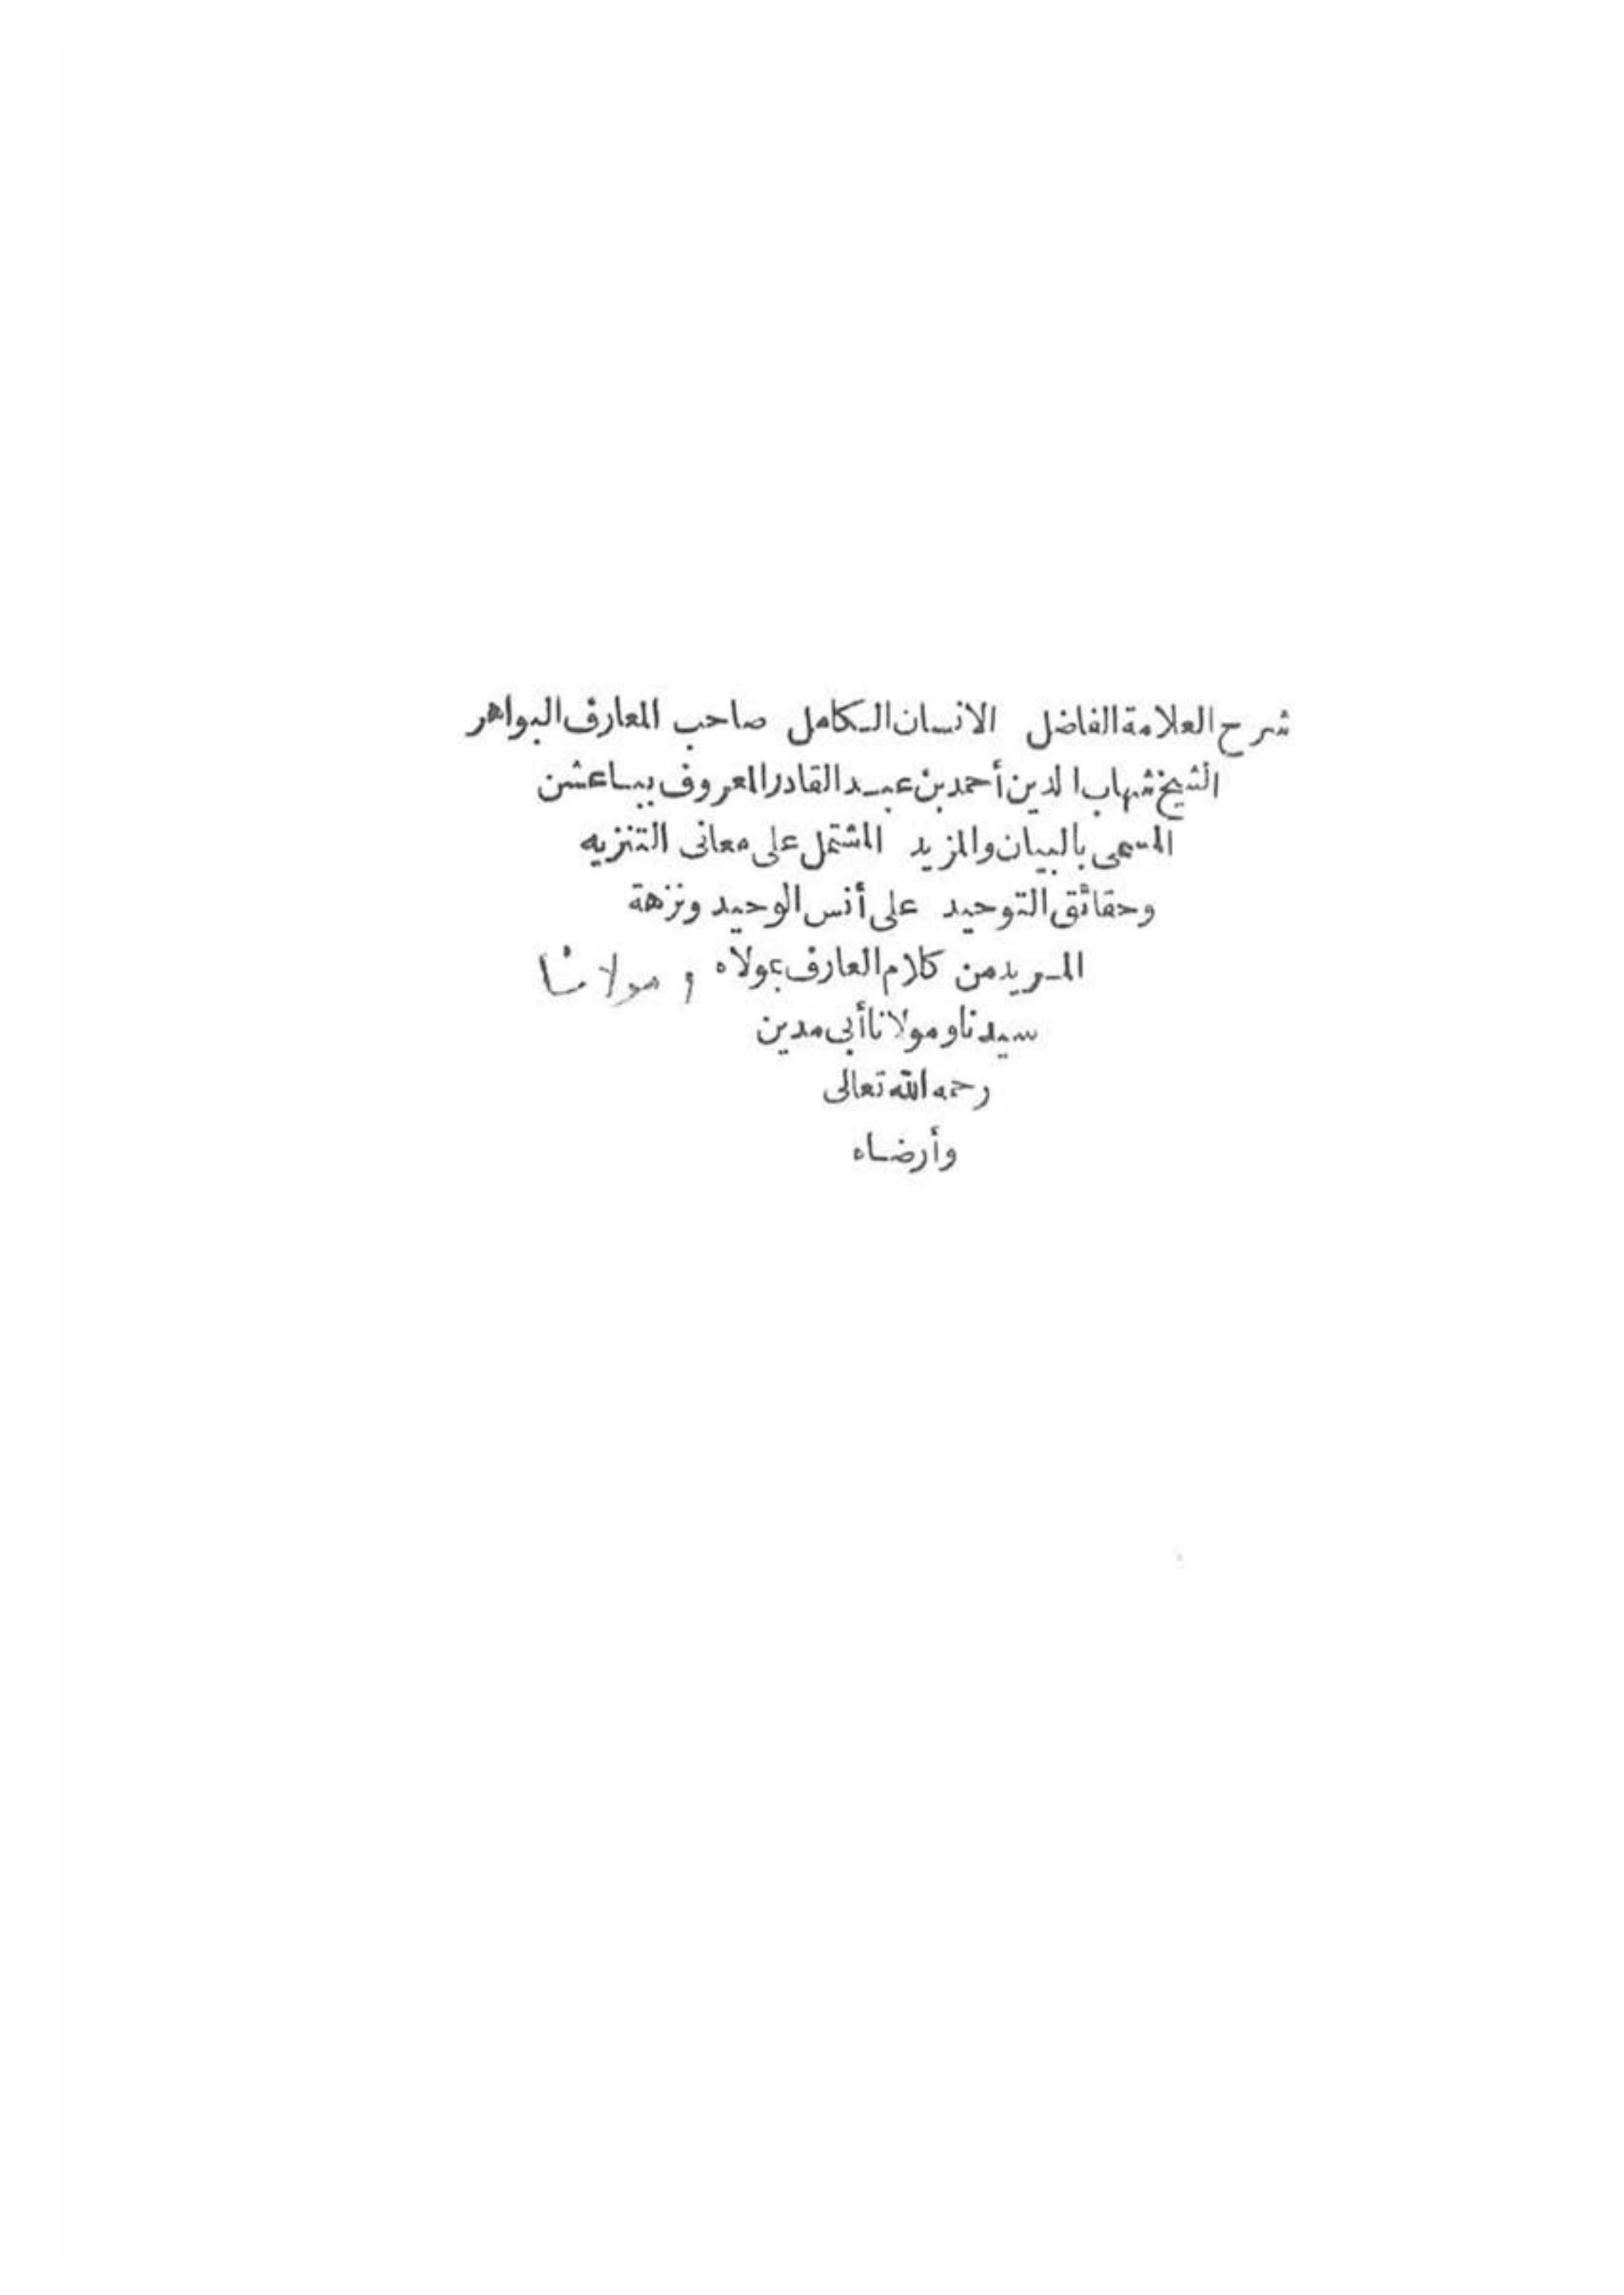 شرح العلامة الفاضل الانسان الكامل صاحب المعارف البواهر
الشيخ شهاب الدين أحمد بن عبد القادر المعروف بباعشن
المسمى بالبيان والمزيد المشتمل على معانى التنزيه
وحقائق التوحيد على أنس الوحيد ونزهة
المريد من كلام العارف بمولاه و مولانا
سيدنا ومولانا أبى مدين
رحمه الله تعالى
وأرضاه